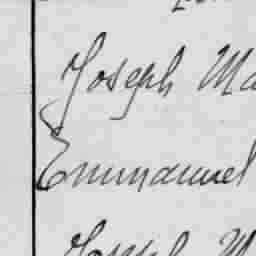 Joseph Ma
Emmanuel
Joseph M